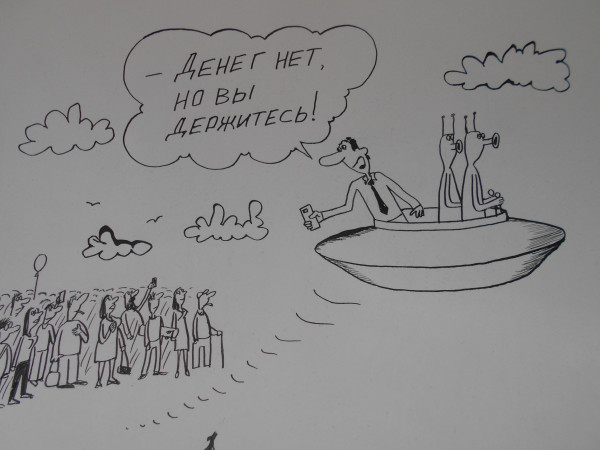 — ДЕНЕГ НЕТ,
НО ВЫ
ДЕРЖИТЕСЬ!